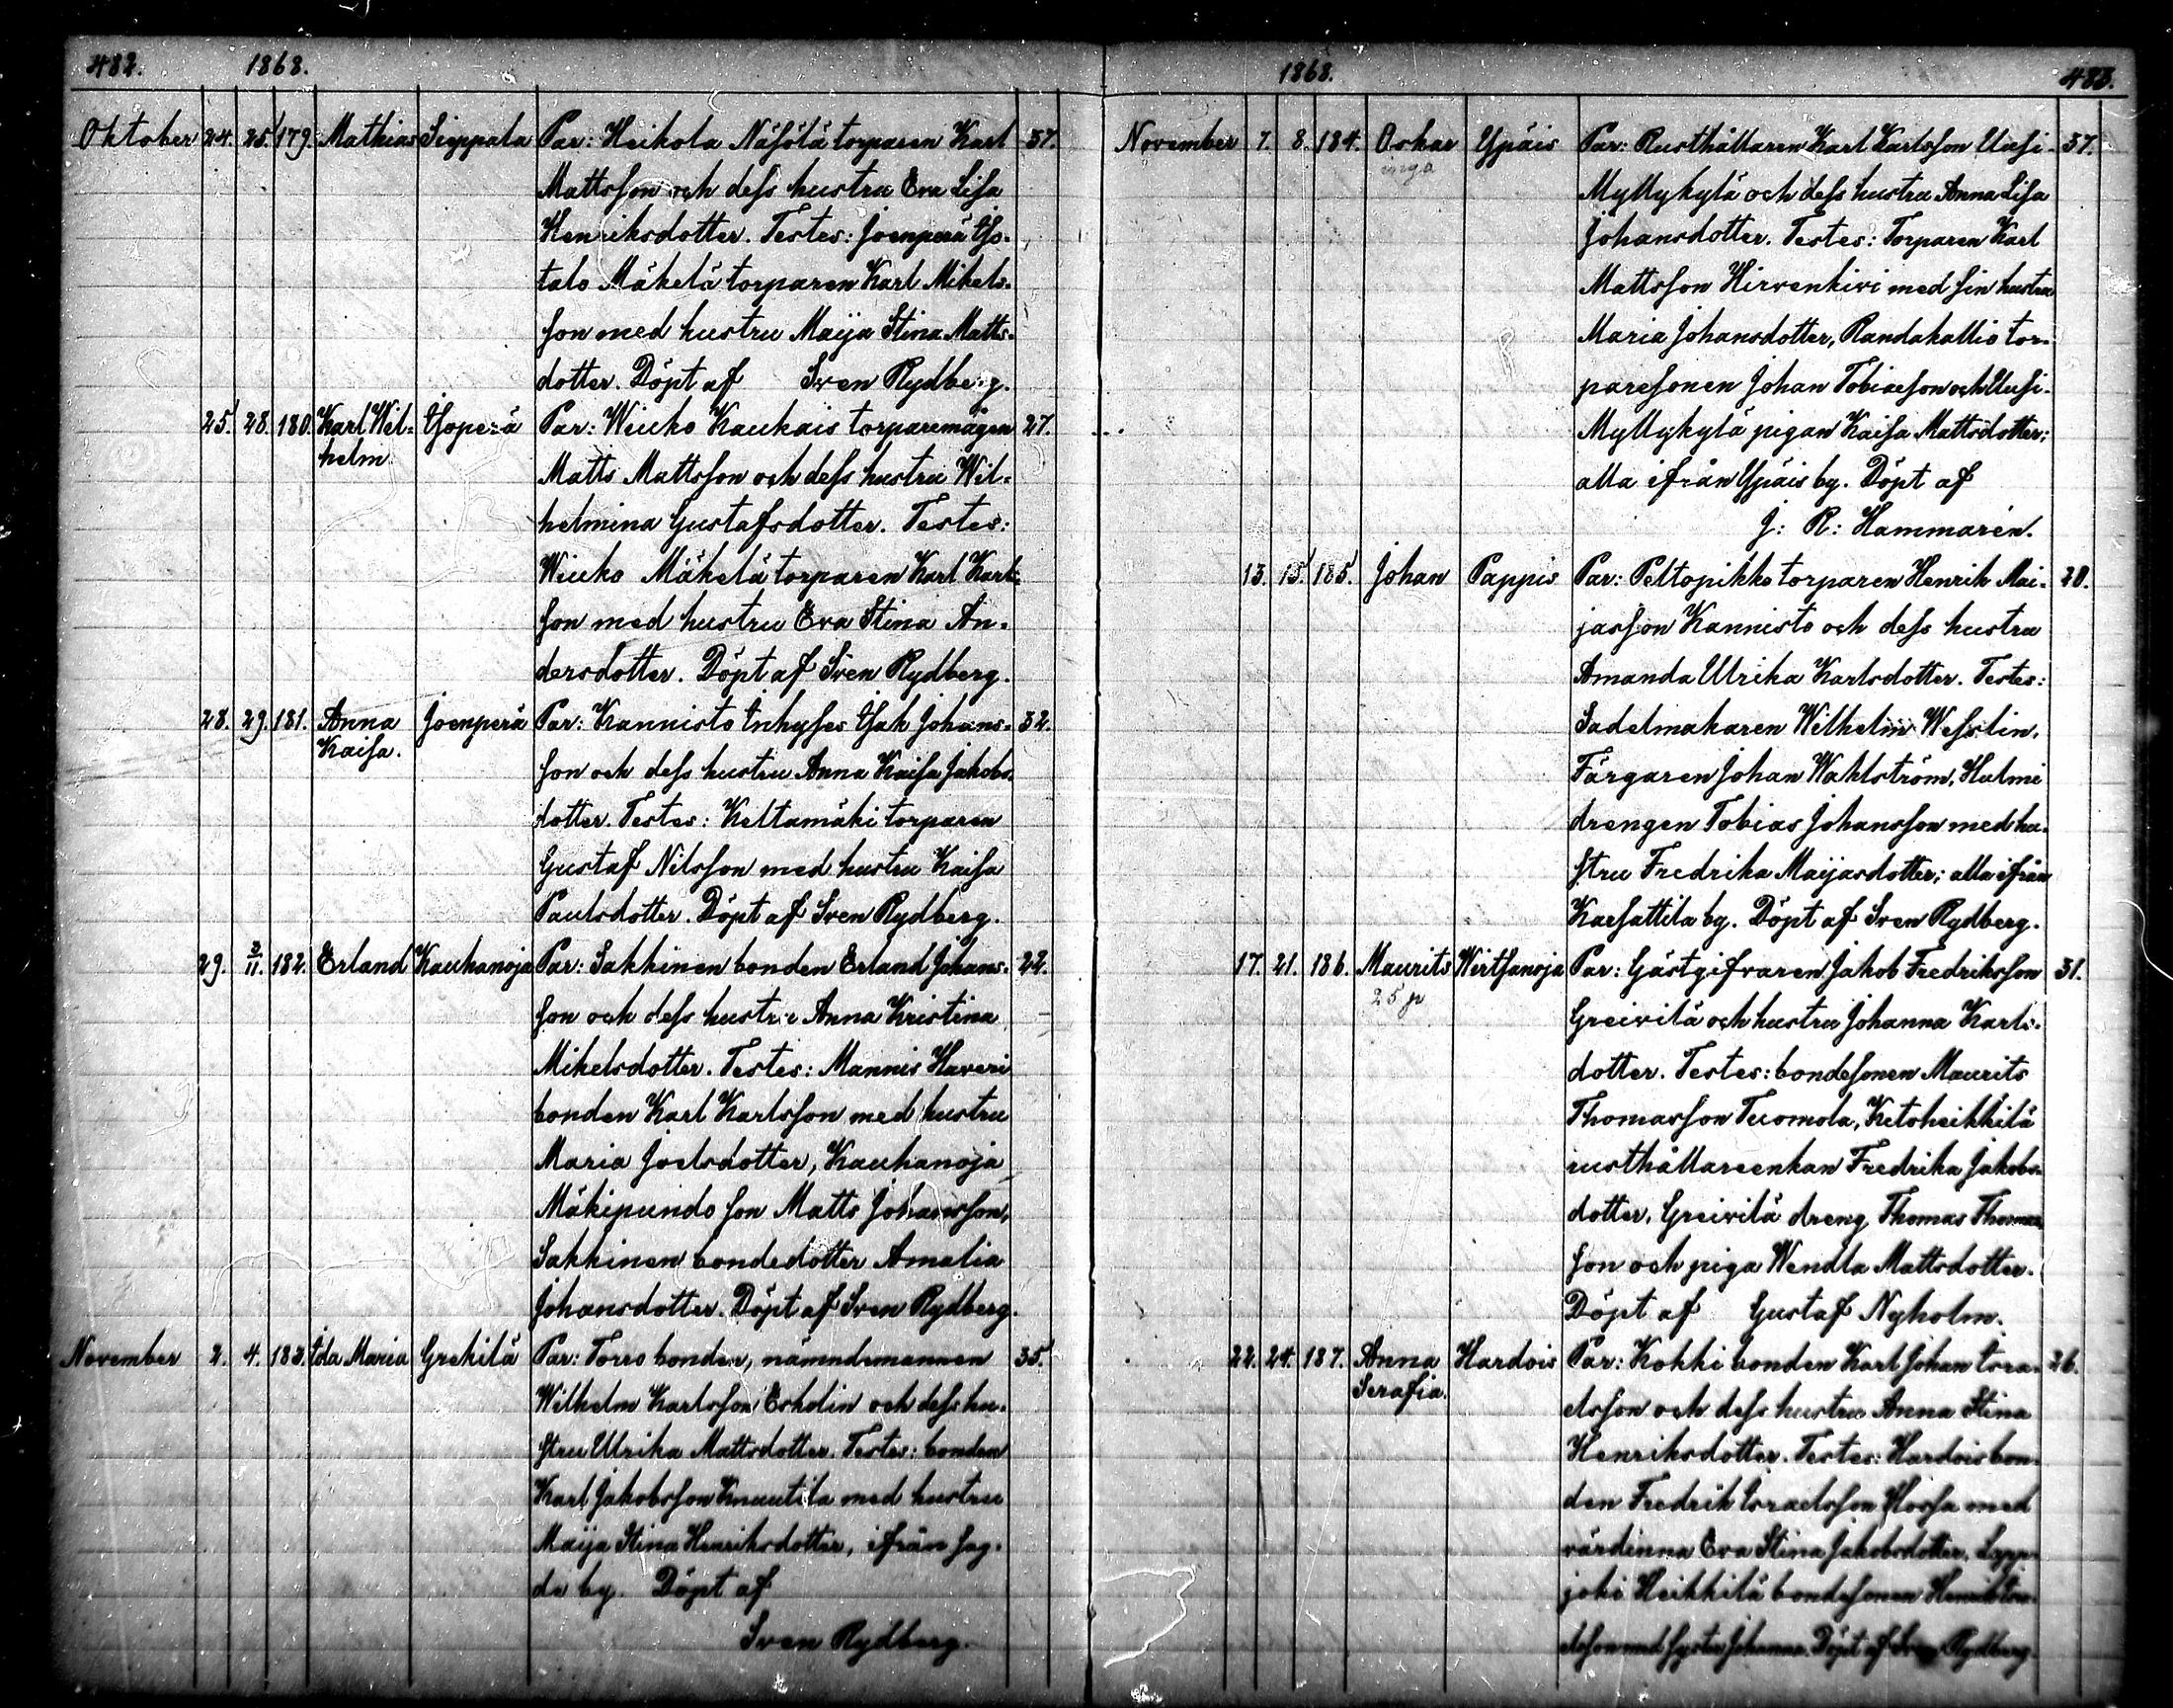 482. 1868.
Oktober 24. 25. 179. Mathias Sieppala Par: Heikola Näsölä torparen Karl 37.
Mattsson och dess hustru Eva Lisa
Henriksdotter. Testes: Joenperä Iso-
talo Mäkelä torparen Karl Mikels-
son med hustru Maija Stina Matts-
dotter. Döpt af Sven Rydberg.
25. 28. 180. Karl Wil- Isoperä Par: Wiuko Kaukais torparemågen 27.
helm Matts Mattsson och dess hustru Wil-
helmina Gustafsdotter. Testes:
Wiuko Mäkelä torparen Karl Karls-
son med hustru Eva Stina An-
dersdotter. Döpt af Sven Rydberg.
28. 29. 181. Anna Joenperä Par: Kannisto Inhyses Isak Johans- 32.
Kaisa. son och dess hustru Anna Kaisa Jakobs-
dotter. Testes: Keltamäki torparen
Gustaf Nilsson med hustru Kaisa
Paulsdotter. Döpt af Sven Rydberg.
29. 2/11. 182. Erland Kauhanoja Par: Sakkinen bonden Erland Johans- 22.
son och dess hustru Anna Kristina
Mikelsdotter. Testes: Mannis Haveri
bonden Karl Karlsson med hustru
Maria Joelsdotter, Kauhanoja
Mäkipundo son Matts Johansson,
Sakkinen bondedotter Amalia
Johansdotter. Döpt af Sven Rydberg.
November 2. 4. 183. Ida Maria Grekilä Par: Torro bonden, nämndemannen 35.
Wilhelm Karlsson Eskolin och dess hu-
stru Ulrika Mattsdotter. Testes: bonden
Karl Jakobsson Knuutila med hustru
Maija Stina Henriksdotter, ifrån sag-
da by. Döpt af
Sven Rydberg.
1868. 483.
November 7. 8. 184. Oskar Ypäis Par: Rusthållaren Karl Karlsson Uusi- 37.
inga
Myllykylä och dess hustru Anna Lisa
Johansdotter. Testes: Torparen Karl
Mattsson Hirvenkivi med sin hustru
Maria Johansdotter, Randakallio tor-
paresonen Johan Tobiasson och Uusi-
Myllykylä pigan Kaisa Mattsdotter;
alla ifrån Ypäis by. Döpt af
J: R: Hammarén.
13. 15. 185. Johan Pappis Par: Peltopikko torparen Henrik Mai- 20.
jasson Kannisto och dess hustru
Amanda Ulrika Karlsdotter. Testes:
Sadelmakaren Wilhelm Wesslin,
Färgaren Johan Wahlström, Hulmi
drengen Tobias Johansson med hu-
stru Fredrika Maijasdotter; alla ifrån
Karsattila by. Döpt af Sven Rydberg.
17. 21. 186. Maurits Wirtsanoja Par: Gästgifvaren Jakob Fredriksson 31.
Greivilä och hustru Johanna Karls-
dotter. Testes: bondesonen Maurits
Thomasson Tuomola, Ketoheikkilä
rusthållareenkan Fredrika Jakobs-
dotter, Greivilä dreng Thomas Thomas
son och piga Wendla Mattsdotter.
Döpt af Gustaf Nyholm.
22. 24. 187. Anna Hardois Par: Kokki bonden Karl Johan Isra- 26.
Serafia. elsson och dess hustru Anna Stina
Henriksdotter. Testes: Hardois bon-
den Fredrik Israelsson med
värdinna Eva Stina Jakobsdotter, Lapp-
joki Heikkilä bondesonen Henrik Isra-
elsson med syster Johanna. Döpt af Sven Rydberg.